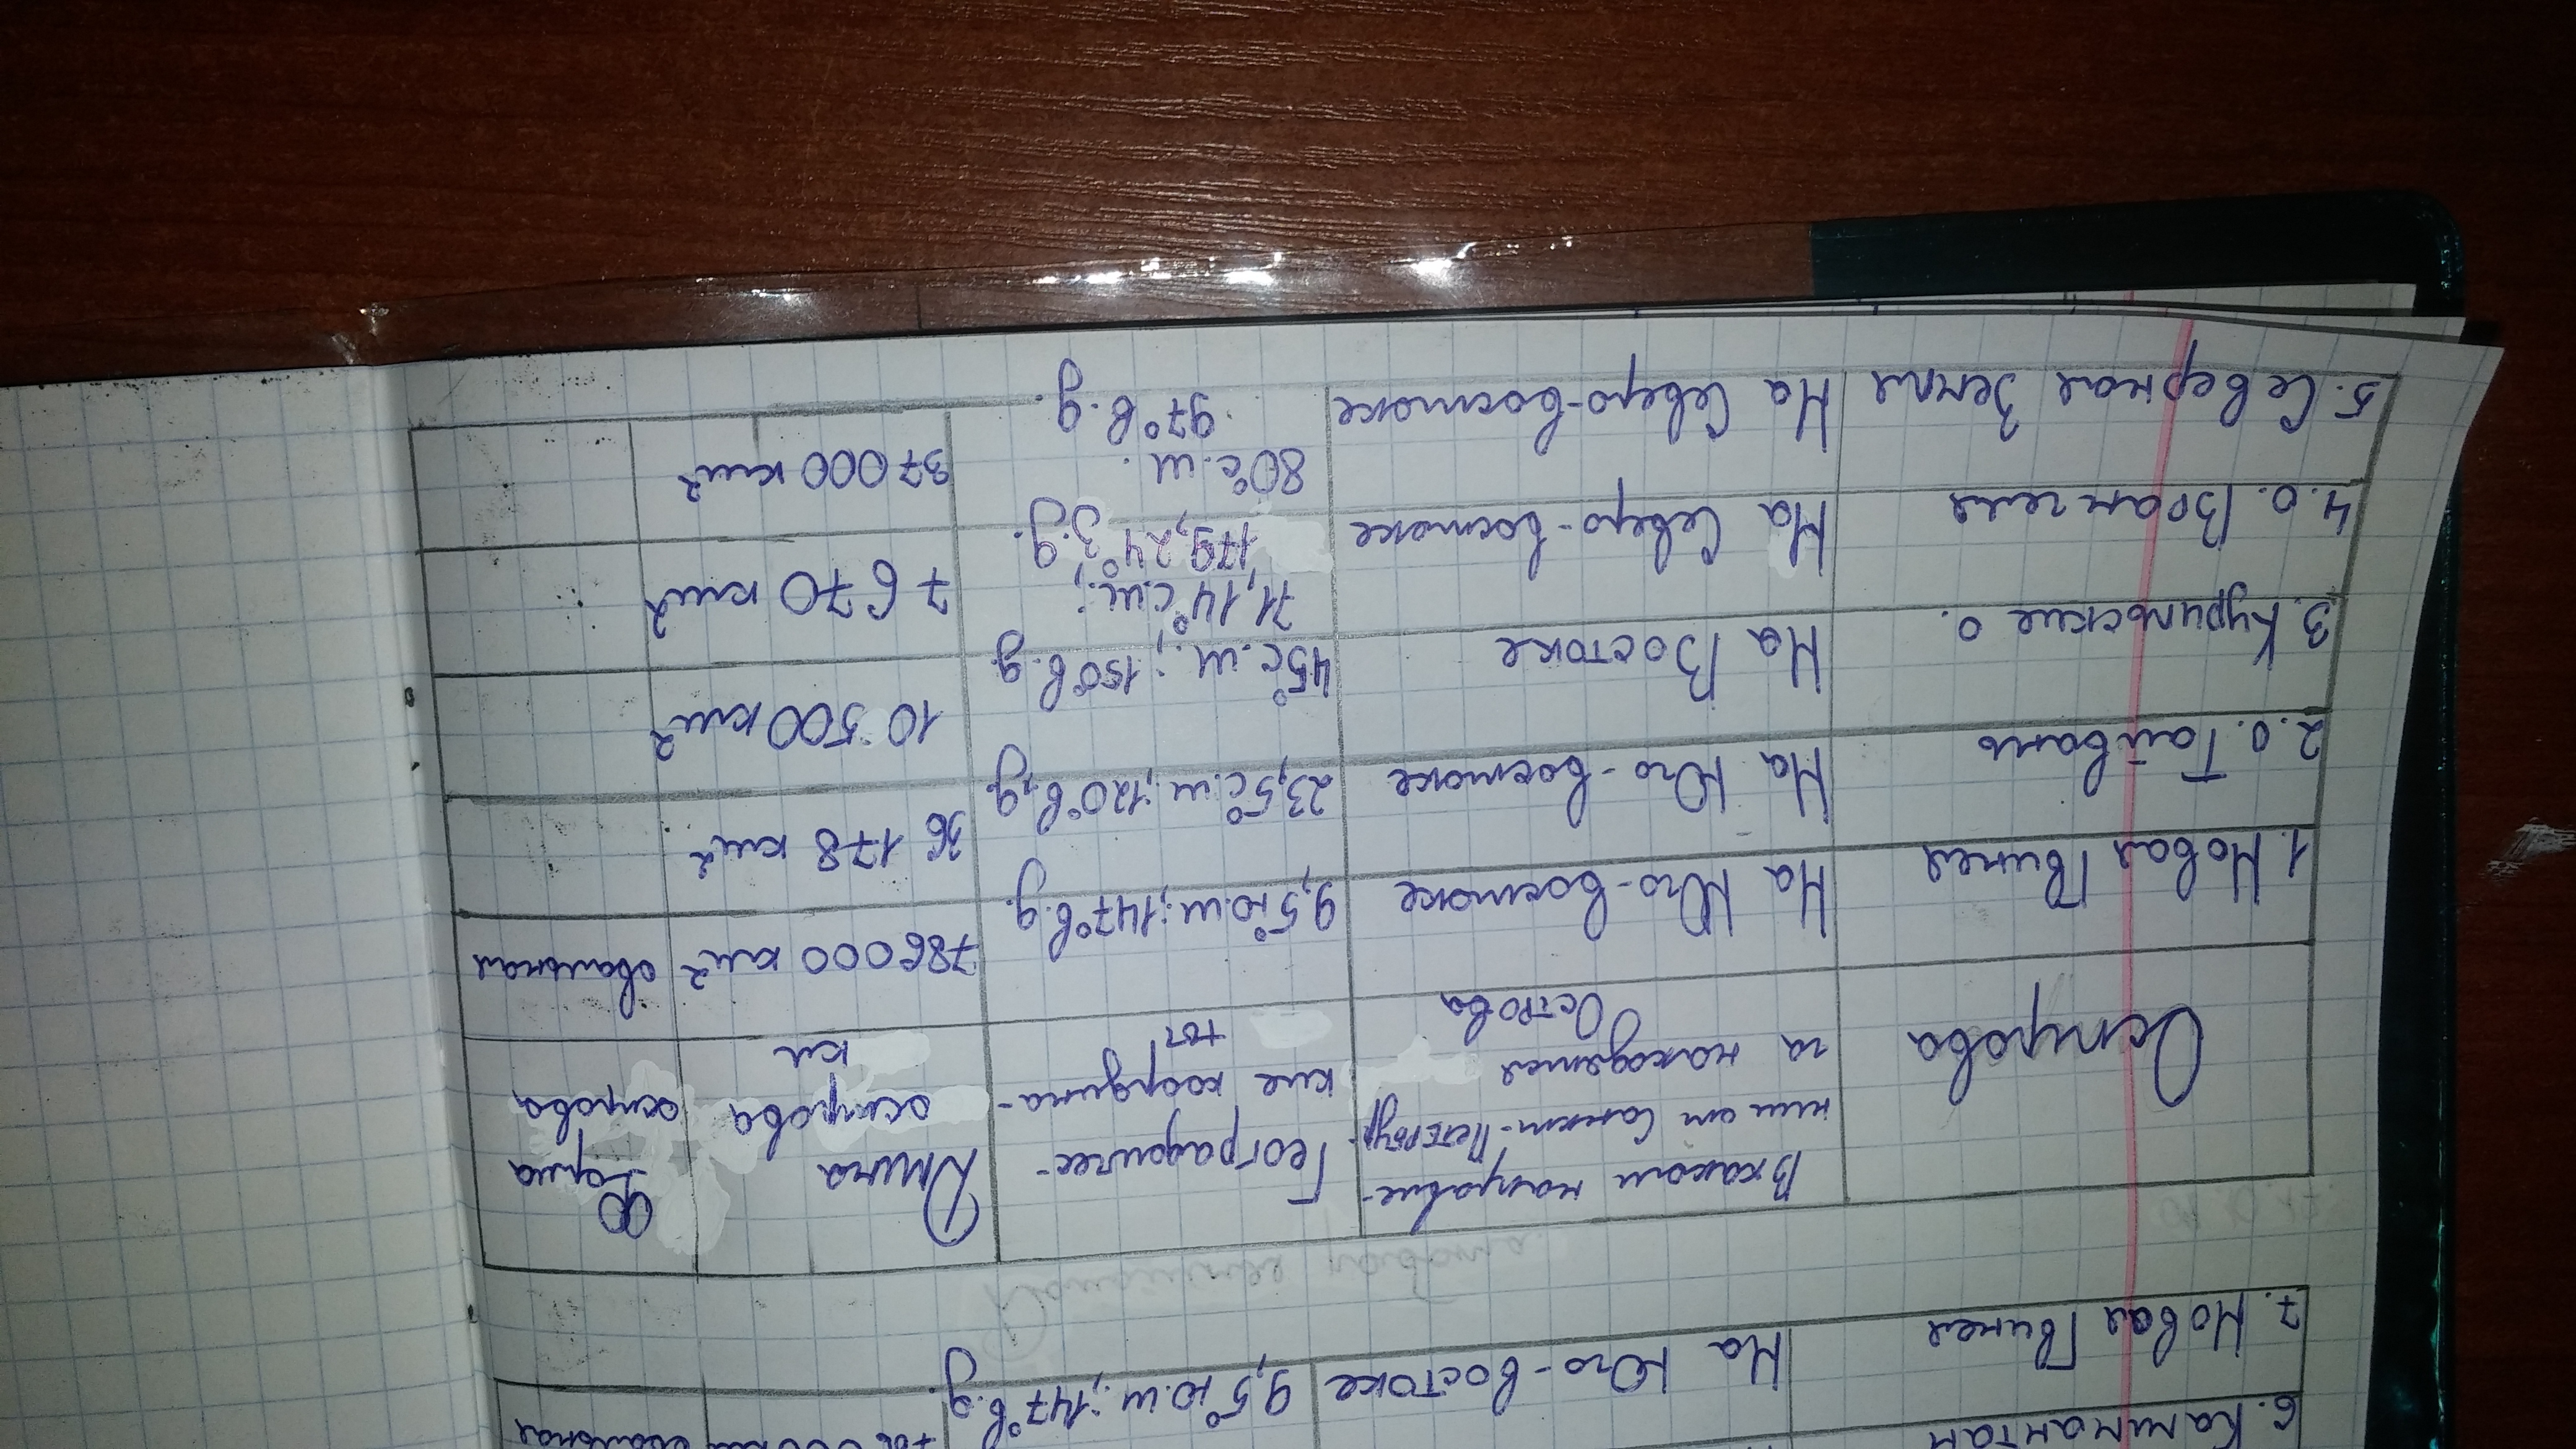 6. Калимантан
7. Новая Гвинея На Юго-востоке 9,5° ю.ш.; 147° в.д.
Острова
В каком направле-
нии от Санкт-Петербур-
га находятся
Острова
Географичес-
кие координа-
ты
Длина
острова
км
Форма
острова
1. Новая Гвинея На Юго-востоке 9,5° ю.ш.; 147° в.д. 786000 км² овальная
2. о. Тайвань На Юго-востоке 23,5° с.ш.; 120° в.д. 36 178 км²
3. Курильские о. На Востоке 45° с.ш.; 150° в.д. 10 500 км²
4. о. Врангеля На Северо-востоке 71,14° с.ш.; 7 670 км²
179,24° з.д.
5. Северная Земля На Северо-востоке 80° с.ш. 37000 км²
97° в.д.